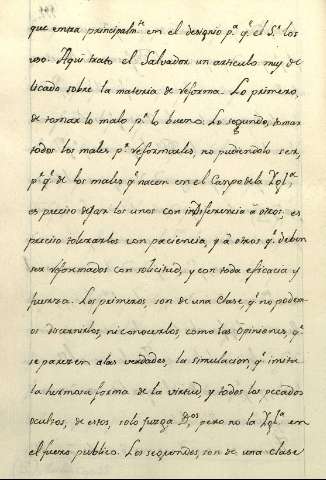 que entra principalm.te en el designio p.a q.e el S.r los
uso. Aqui trató el Salvador un articulo muy de
licado sobre la materia de reforma. Lo primero,
de tomar lo malo p.r lo bueno. Lo segundo, tomar
todos los males p.a reformarles, no pudiendolo ser,
p.r q.e de los males q.e nacen en el Campo de la Ygl.a
es preciso dejar los unos con indiferencia á otros, es
preciso tolerarlos con paciencia, y á otros q.e deben
ser reformados con solicitud, y con toda eficacia y
fuerza. Los primeros, son de una clase q.e no podem
os dicernirlos, ni conocerlos, como las opiniones, q.e
se parecen a las verdades, la simulacion, q.e imita
la hermosa forma de la virtud, y todos los pecados
ocultos, de estos, solo juzga D.os pero no la Ygl.a en
el fuero publico. Los segundos, son de una clase